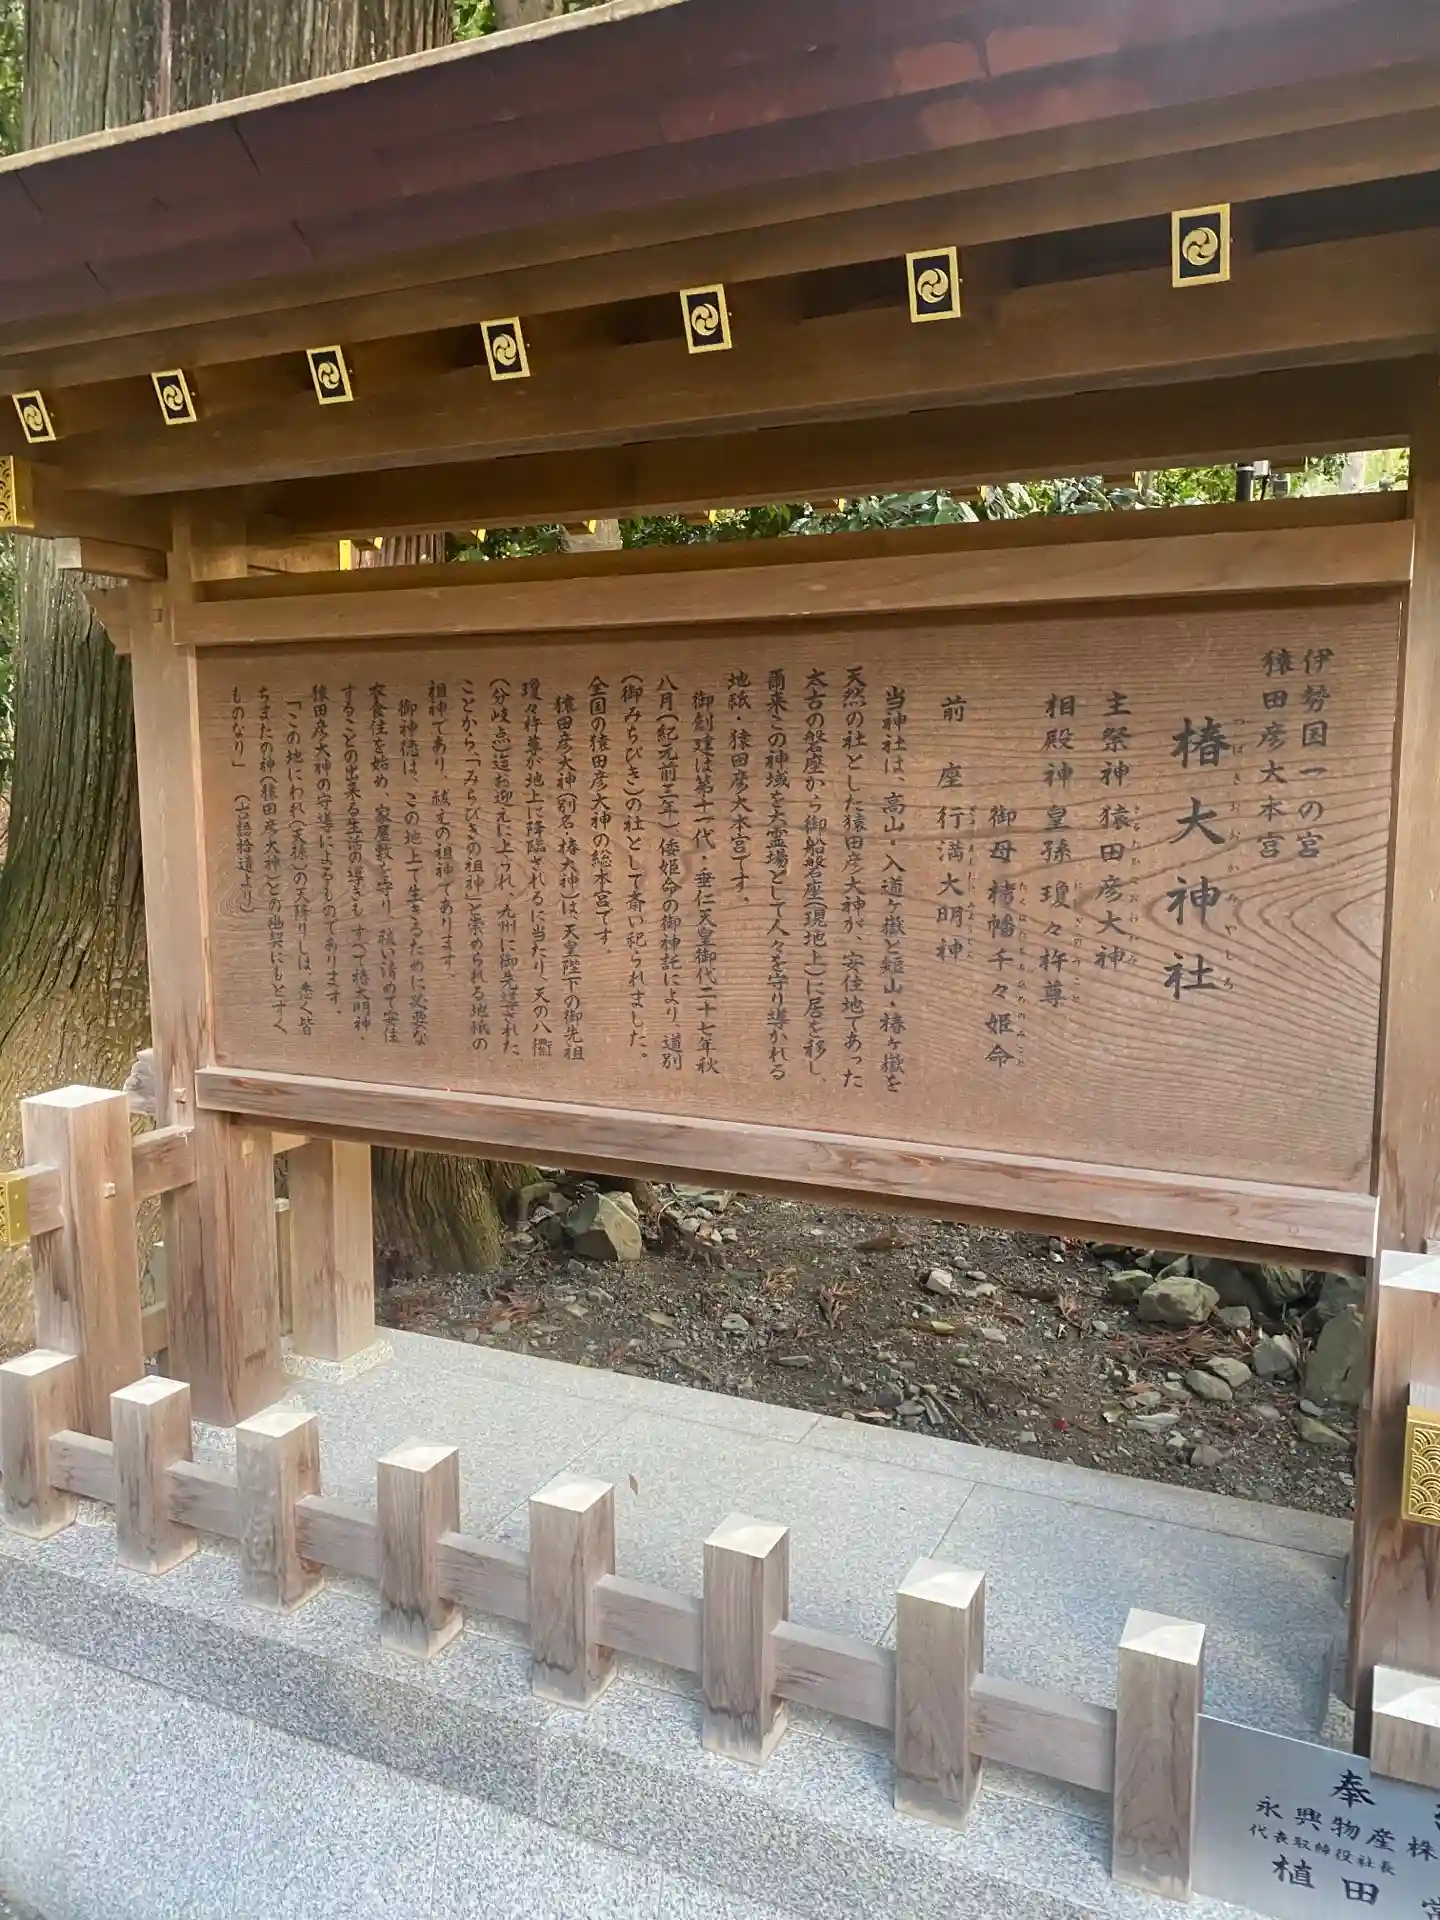 伊勢国一の宮
猿田彦大本宮
椿大神社
つばきおおかみやしろ
主祭神 猿田彦大神
相殿神 皇孫 瓊々杵尊
御母 栲幡千々姫命
前座 行満大明神
当神社は、高山・入道ヶ嶽と短山・椿ヶ嶽を
天然の社とした猿田彦大神が、安住地であった
太古の磐座から御船磐座(現地上)に居を移し、
爾来この神域を大霊場として人々を守り導かれる
地祇・猿田彦大本宮です。
御創建は第十一代・垂仁天皇御代二十七年秋
八月(紀元前三年)倭姫命の御神託により、道別
(御みちびき)の社として斎い祀られました。
全国の猿田彦大神の総本宮です。
猿田彦大神(別名・椿大神)は、天皇陛下の御先祖
瓊々杵尊が地上に降臨されるに当たり、天の八衢
(分岐点)迄お迎えに上られ、九州に御先導された
ことから、「みちびきの祖神」と崇められる地祇の
祖神であり、祓えの祖神であります。
御神徳は、この地上で生きるために必要な
衣食住を始め、家屋敷を守り、祓い清めて安住
することの出来る生活の導きも、すべて椿大明神・
猿田彦大神の守導によるものであります。
「この地にわれ(天孫)の天降りしは、悉く皆
ちまたの神(猿田彦大神)との幽契にもとずく
ものなり」
(古語拾遺より)
奉
永興物産株
代表取締役社長
植田